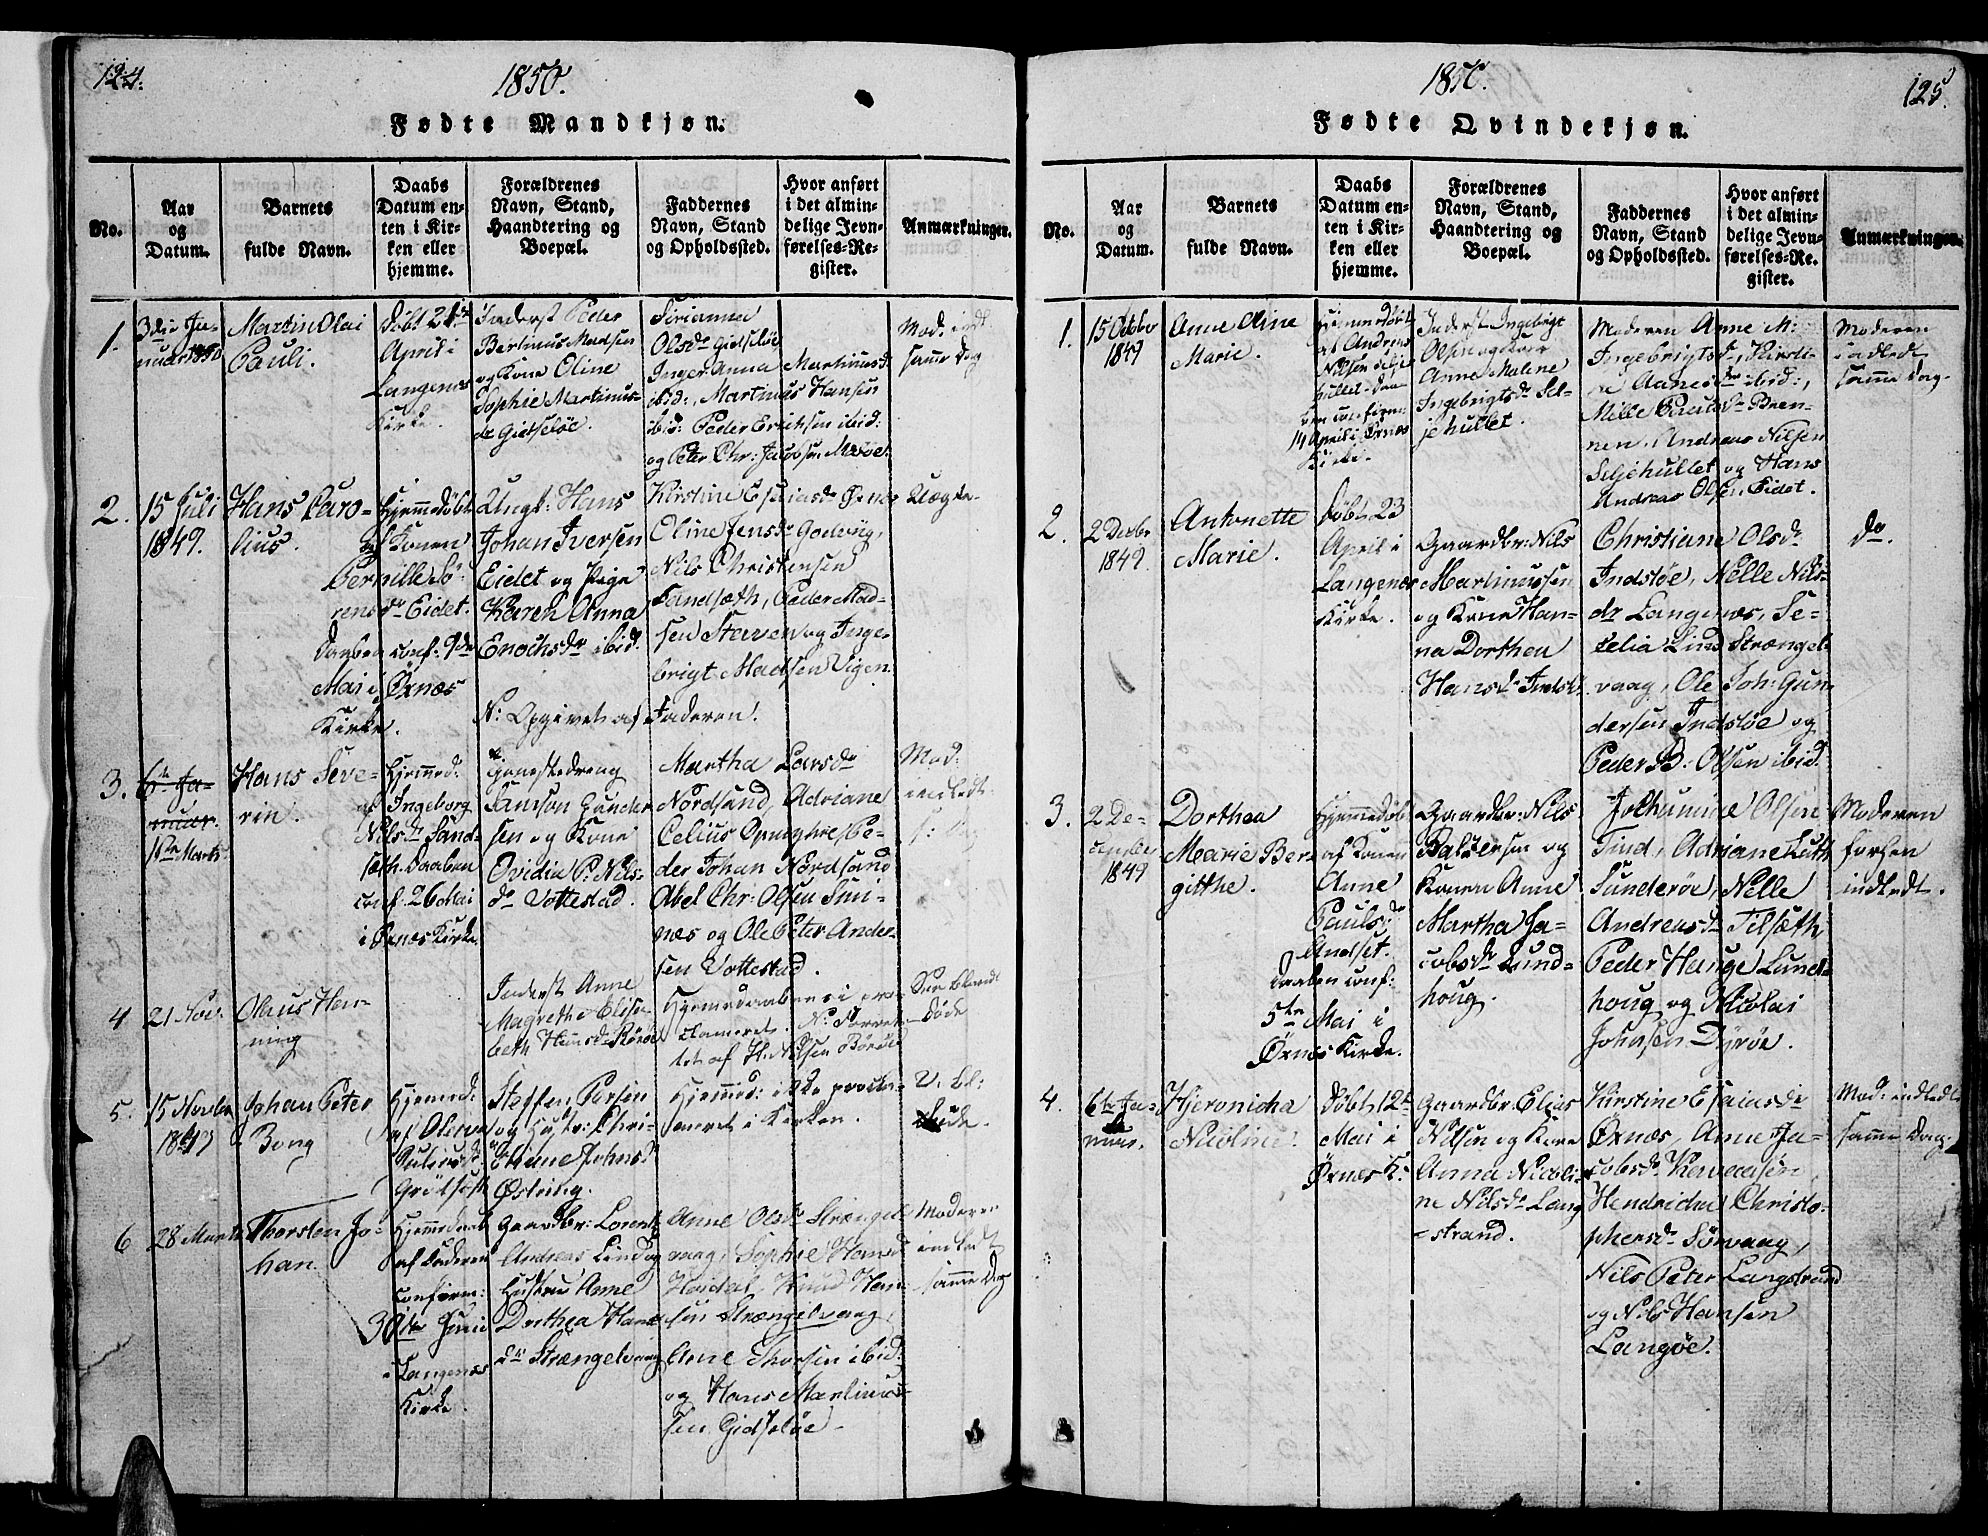 124.
1850.
Fødte Mandkjøn.
No.
Aar
og
Datum.
Barnets
fulde Navn.
Daabs
Datum en-
ten i Kir-
ken eller
hjemme.
Forældrenes
Navn, Stand,
Haandtering og
Boepæl.
Faddernes
Navn, Stand
og Opholdssted.
Hvor anført
i det almin-
delige Jevn-
førelses-Re-
gister.
Anmærkninger.
1.
3die Ja-
nuar 1850
Martin Olai
Pauli.
Døbt 21de
April i
Langenes
Kirke.
Inderst Peder
Bertinus Madsen
og Kone Oline
Sophie Martinus-
dr Gidsløe.
Olsdr Gidsløe
Inger Anna Martinusd:
ibid:, Martinus Hansen
ibid: Peder Erichsen ibid:
og Peter Chr: Jacobsen
Mod: indl:
samme Dag
2.
15 Juli
1849.
Hans Caro-
lius.
Hjemmedøbt
af Konen
Pernille Sø-
rensdr Eidet.
Daaben conf: 9de
Mai i Ørnæs
Kirke.
Ungk: Hans
Johan Iversen
Eidet og Pige
Karen Anna
Enochsdr ibid.
N: Opgivet af Faderen!
Kirstine Esaiasdr Ørnæs
Oline Jensdr Godvig,
Nils Christensen
Sandsæth, Peder Mad-
sen Staven og Inge-
brigt Madsen Vigen.
Uægte
3.
6te Ja-
nuar.
11te Marts.
Hans Seve-
rin.
Hjemmed:
af Ingeborg
Nilsdr Sand-
sæth. Daaben
conf: 26 Mai
i Ørnæs Kirke
Samson Gunder
sen og Kone
Ovidia P. Nils-
dr Vottestad.
Martha Larsdr
Nordsand, Adriane
Celius Pe-
der Johan Nordsand
Abel Chr: Olsen Smi-
næs og Ole Peter Ander-
sen Vottestad.
Mod:
indledt
s: Dag
4
21 Nov:
Olaus Hen-
ning
Inderst Anne
Magrethe Elisa
beth Hansdr
Hjemmedaaben ei pro-
clameret.
tet af H. Nilsen Børøe
See blandt
Døde
5.
15 Novbr
1849
Johan Peter
Bong
Hjemmed:
Steffen
og Hustr: Chri-
stiane Johnsd
Østring.
Hjemmed: ikke procla-
meret i Kirken.
V. bl:
Døde.
6
28 Marts
Thorsten Jo-
han.
Hjemmedøbt
af Faderen
confirm:
30te Juni
i Langenæs
Kirke.
Gaardbr: Lorents
Andreas Lind og
Hustru Anne
Dorthea Hans
dr Strængelvaag
Anne Olsdr Strængel-
vaag, Sophie Hansd
Høidal, Knud Han-
sen Strængelvaag,
Arne Thorsen ibid:
og Hans Martinus-
sen Gidsløe.
Moderen
indledt
samme Dag
1850.
125.
Fødte Qvindekjøn.
No.
Aar
og
Datum.
Barnets
fulde Navn.
Daabs
Datum en-
ten i Kir-
ken eller
hjemme.
Forældrenes
Navn, Stand,
Haandtering og
Boepæl.
Faddernes
Navn, Stand
og Opholdssted.
Hvor anført
i det almin-
delige Jevn-
førelses-Re-
gister.
Anmærkninger.
1.
15 Octobr
1849
Anne Oline
Marie.
Hjemmedøbt
af Andreas
Nilsen Selje
hullet. Daa-
ben confirm:
14 April i Ørnæs
Kirke.
Inderst Ingebrigt
Olsen og Kone
Anne Malene
Ingebrigtsdr Sel-
jehullet.
Moderen Anne M:
Ingebrigtsdr, Karoli-
ne Aanesdr ibid:,
Mille Paulsdr Bren-
nen. Andreas Nilsen
Seljehullet og Hans
Andreas Olsen Eidet.
Moderen
indledt
samme Dag.
2.
2 Decbr
1849.
Antonette
Marie.
Døbt 23
April i
Langenæs
Kirke.
Gaardbr: Nils
Martinussen
og Kone Han-
na Dorthea
Hansdr Indsl.
Christiane Olsdr
Indsløe, Nelle Nils-
dr Langenæs, Se-
celia Lind Strængel-
vaag, Ole Joh: Gun-
dersen Indsløe og
Peder B: Olsen ibid.
do.
3.
2 De-
cember
1849
Dorthea
Marie Ber-
gitthe.
Hjemmedøbt
af Konen
Anne
Paulsdr
Andset.
Daaben conf:
5te Mai i
Ørnæs Kirke.
Gaardbr: Nils
Baltsersen og
Konen Anne
Martha Ja-
cobsdr Lund-
houg.
Johannine Olsen
Tind, Adriane Ruth
Sunderøe, Nelle
Andreasdr Tilsæth
Peder Hauge Lund-
houg og Nicolai
Johnsen Dyrøe.
Moderen
forhen
indledt.
4.
6te Ja-
nuar.
Hjeronicha
Nicoline.
Døbt 12te
Mai i
Ørnæs K:
Gaardbr Elias
Nilsen og Kone
Anna Nicoli-
ne Nilsdr Lang
-strand.
Kirstine Esaiasdr
Ørnæs, Anne Ja-
cobsdr
Hendricha Christo-
phersdr Sørvaag,
Nils Peter Langstrand
og Nils Hansen
Langøe.
Mod: indledt
samme Dag.